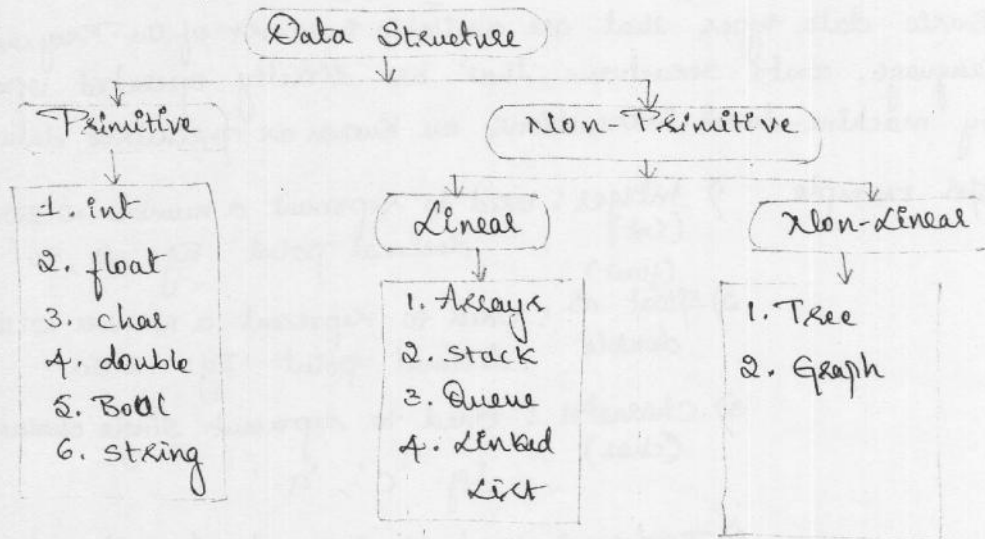 Data Structure
Primitive
Non-Primitive
1. int
2. float
3. char
4. double
5. Bool
6. String
Linear
1. Arrays
2. Stack
3. Queue
4. Linked
List
Non-Linear
1. Tree
2. Graph